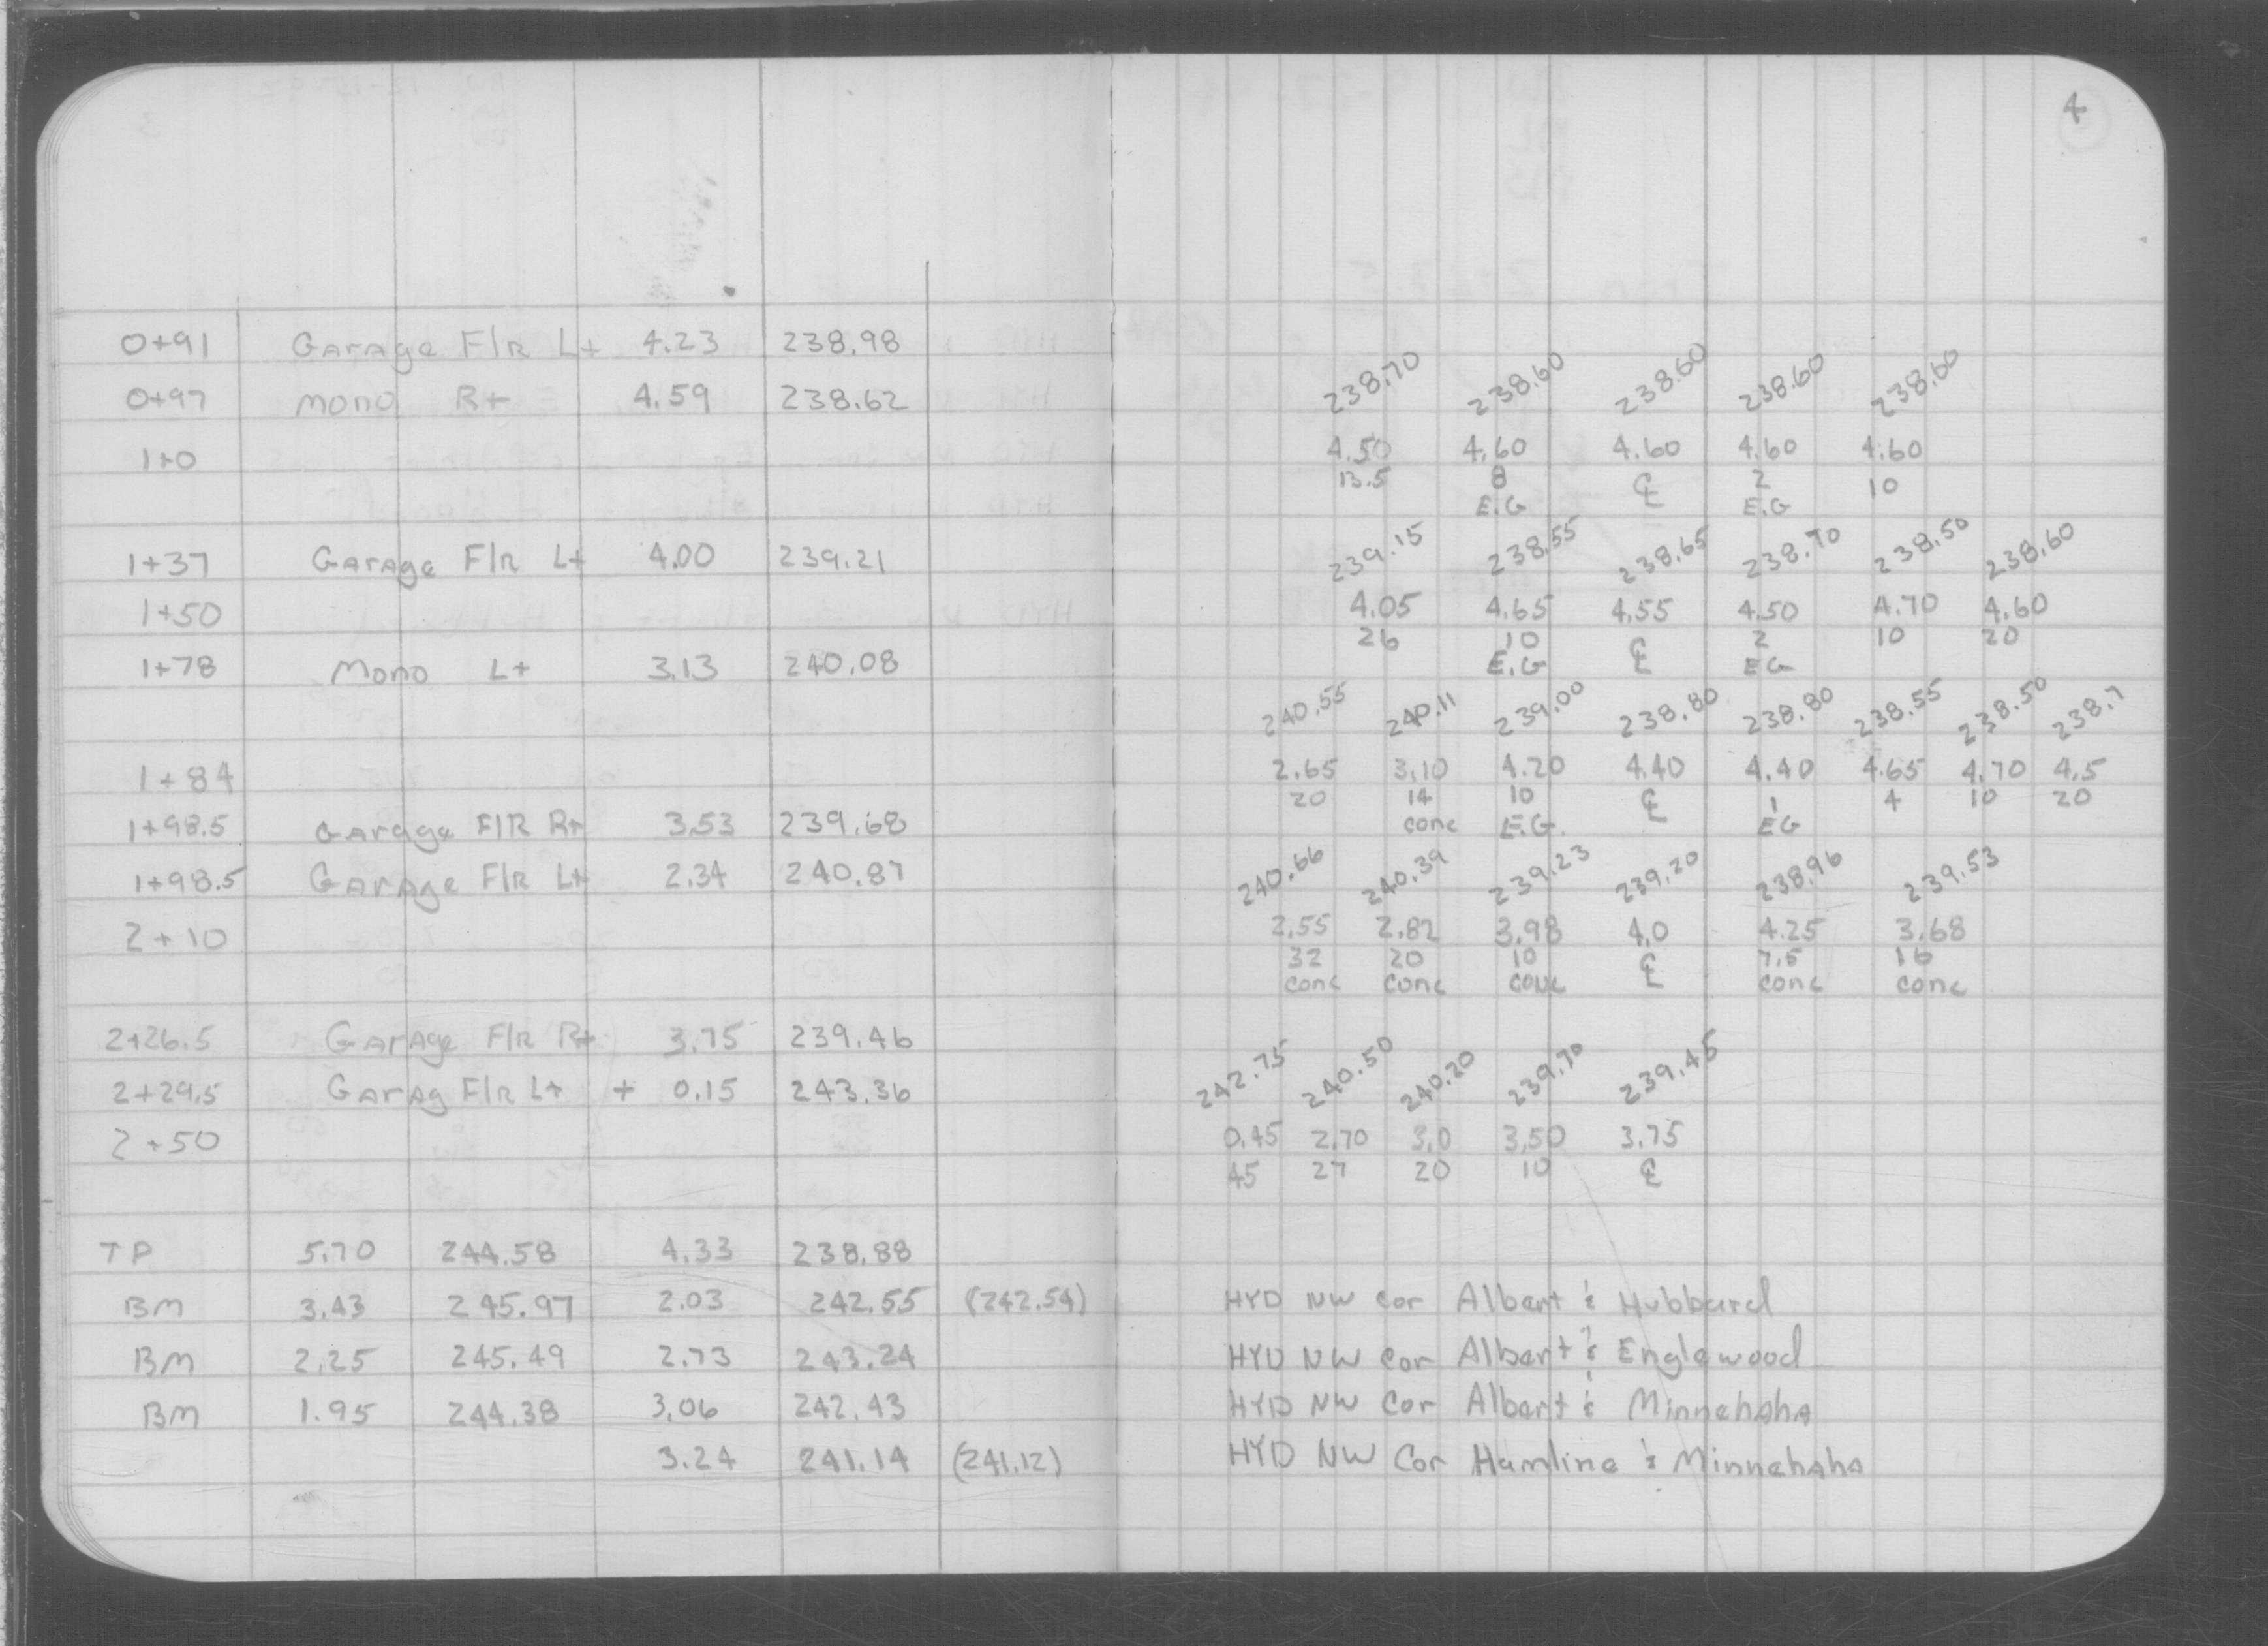 4
0+91 Garage Flr Lt 4.23 238.98
0+97 Mono Rt 4.59 238.62
238.70 238.60 238.60 238.60 238.60
1+0 4.50 4.60 4.60 4.60 4.60
13.5 8 ℄ 2 10
E.G E.G
239.15 238.55 238.65 238.70 238.50 238.60
1+37 Garage Flr Lt 4.00 239.21
1+50 4.05 4.65 4.55 4.50 4.70 4.60
26 10 ℄ 2 10 20
E.G EG
1+78 Mono Lt 3.13 240.08
240.55 240.11 239.00 238.80 238.80 238.55 238.50 238.7
1+84 2.65 3.10 4.20 4.40 4.40 4.65 4.70 4.5
20 14 10 ℄ 1 4 10 20
conc E.G. EG
1+98.5 Garage Flr Rt 3.53 239.68
1+98.5 Garage Flr Lt 2.34 240.87
240.66 240.39 239.23 239.20 238.96 239.53
2+10 2.55 2.82 3.98 4.0 4.25 3.68
32 20 10 ℄ 7.5 16
conc conc conc conc conc
2+26.5 Garage Flr Rt 3.75 239.46
2+29.5 Garag Flr Lt + 0.15 243.36
242.75 240.50 240.20 239.70 239.45
2+50 0.45 2.70 3.0 3.50 3.75
45 27 20 10 ℄
TP 5.70 244.58 4.33 238.88
BM 3.43 245.97 2.03 242.55 (242.54) HYD NW Cor Albert & Hubbard
BM 2.25 245.49 2.73 243.24 HYD NW Cor Albert & Englewood
BM 1.95 244.38 3.06 242.43 HYD NW Cor Albert & Minnehaha
3.24 241.14 (241.12) HYD NW Cor Hamline & Minnehaha